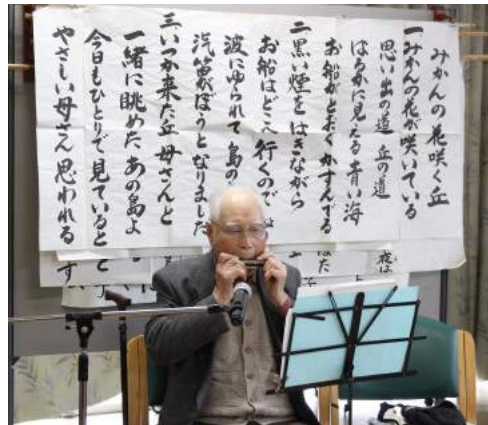 みかんの花咲く丘
一、みかんの花が咲いている
思い出の道 丘の道
はるかに見える 青い海
お船がとおく かすんでる
二 黒い煙を はきながら
お船はどこへ 行くので
波にゆられて 島の
汽笛がぼうとなりました
三 いつか来た丘 母さんと
一緒に眺めた あの島よ
今日もひとりで 見ていると
やさしい母さん 思われる